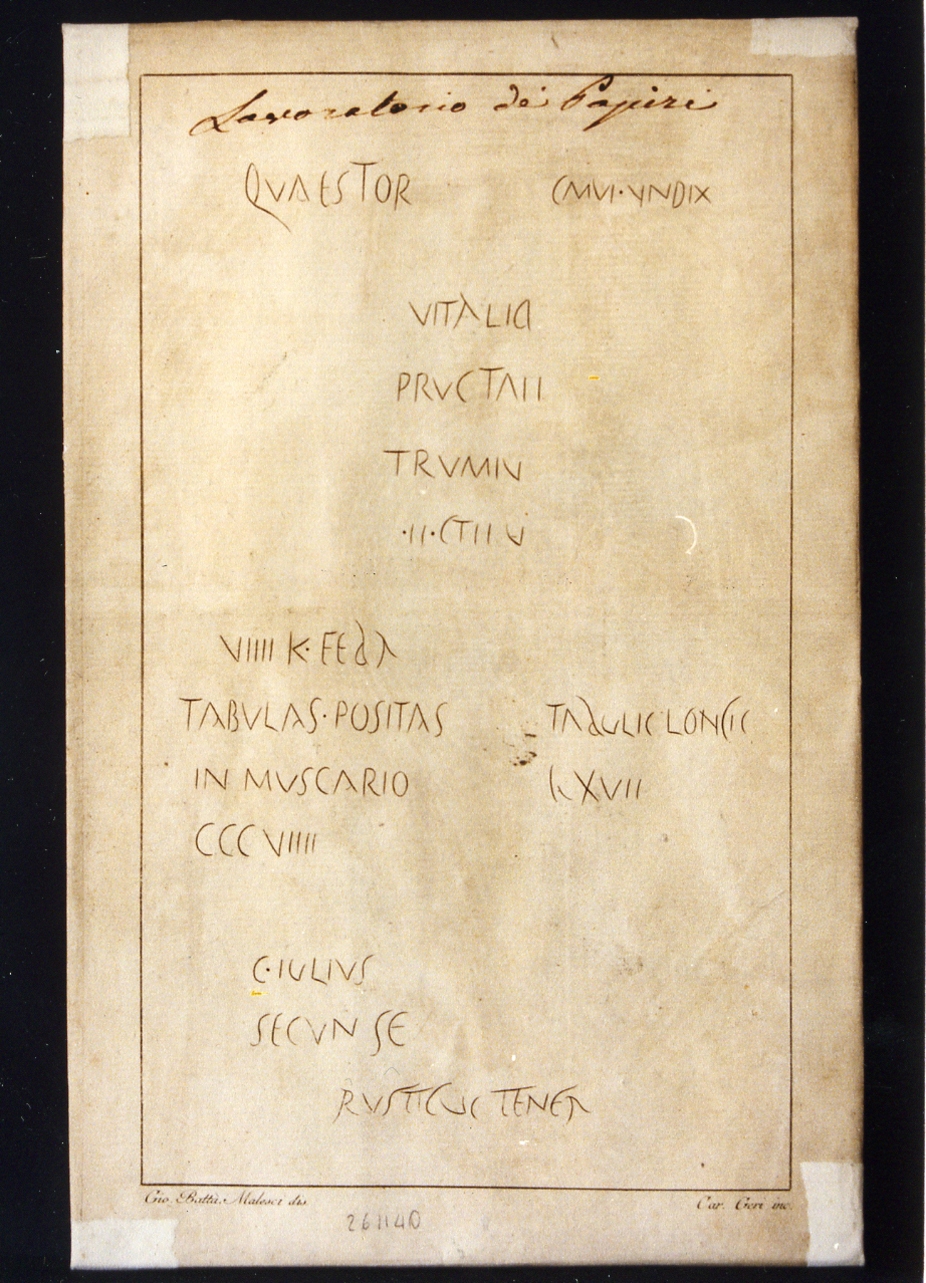 Lavoratorio dei Papiri
QVAESTOR
VITALIA
PRVCTAII
TRVMIV
·II·CTII V
VIIII K· FEBA
TABVLAS·POSITAS
IN MVSCARIO LXVII
CCCVIIII
C·IVLIVS
SECVN SE
RVSTICVS TENER
Gio. Batta. Malesci dis.
Car. Geri inc.
261140